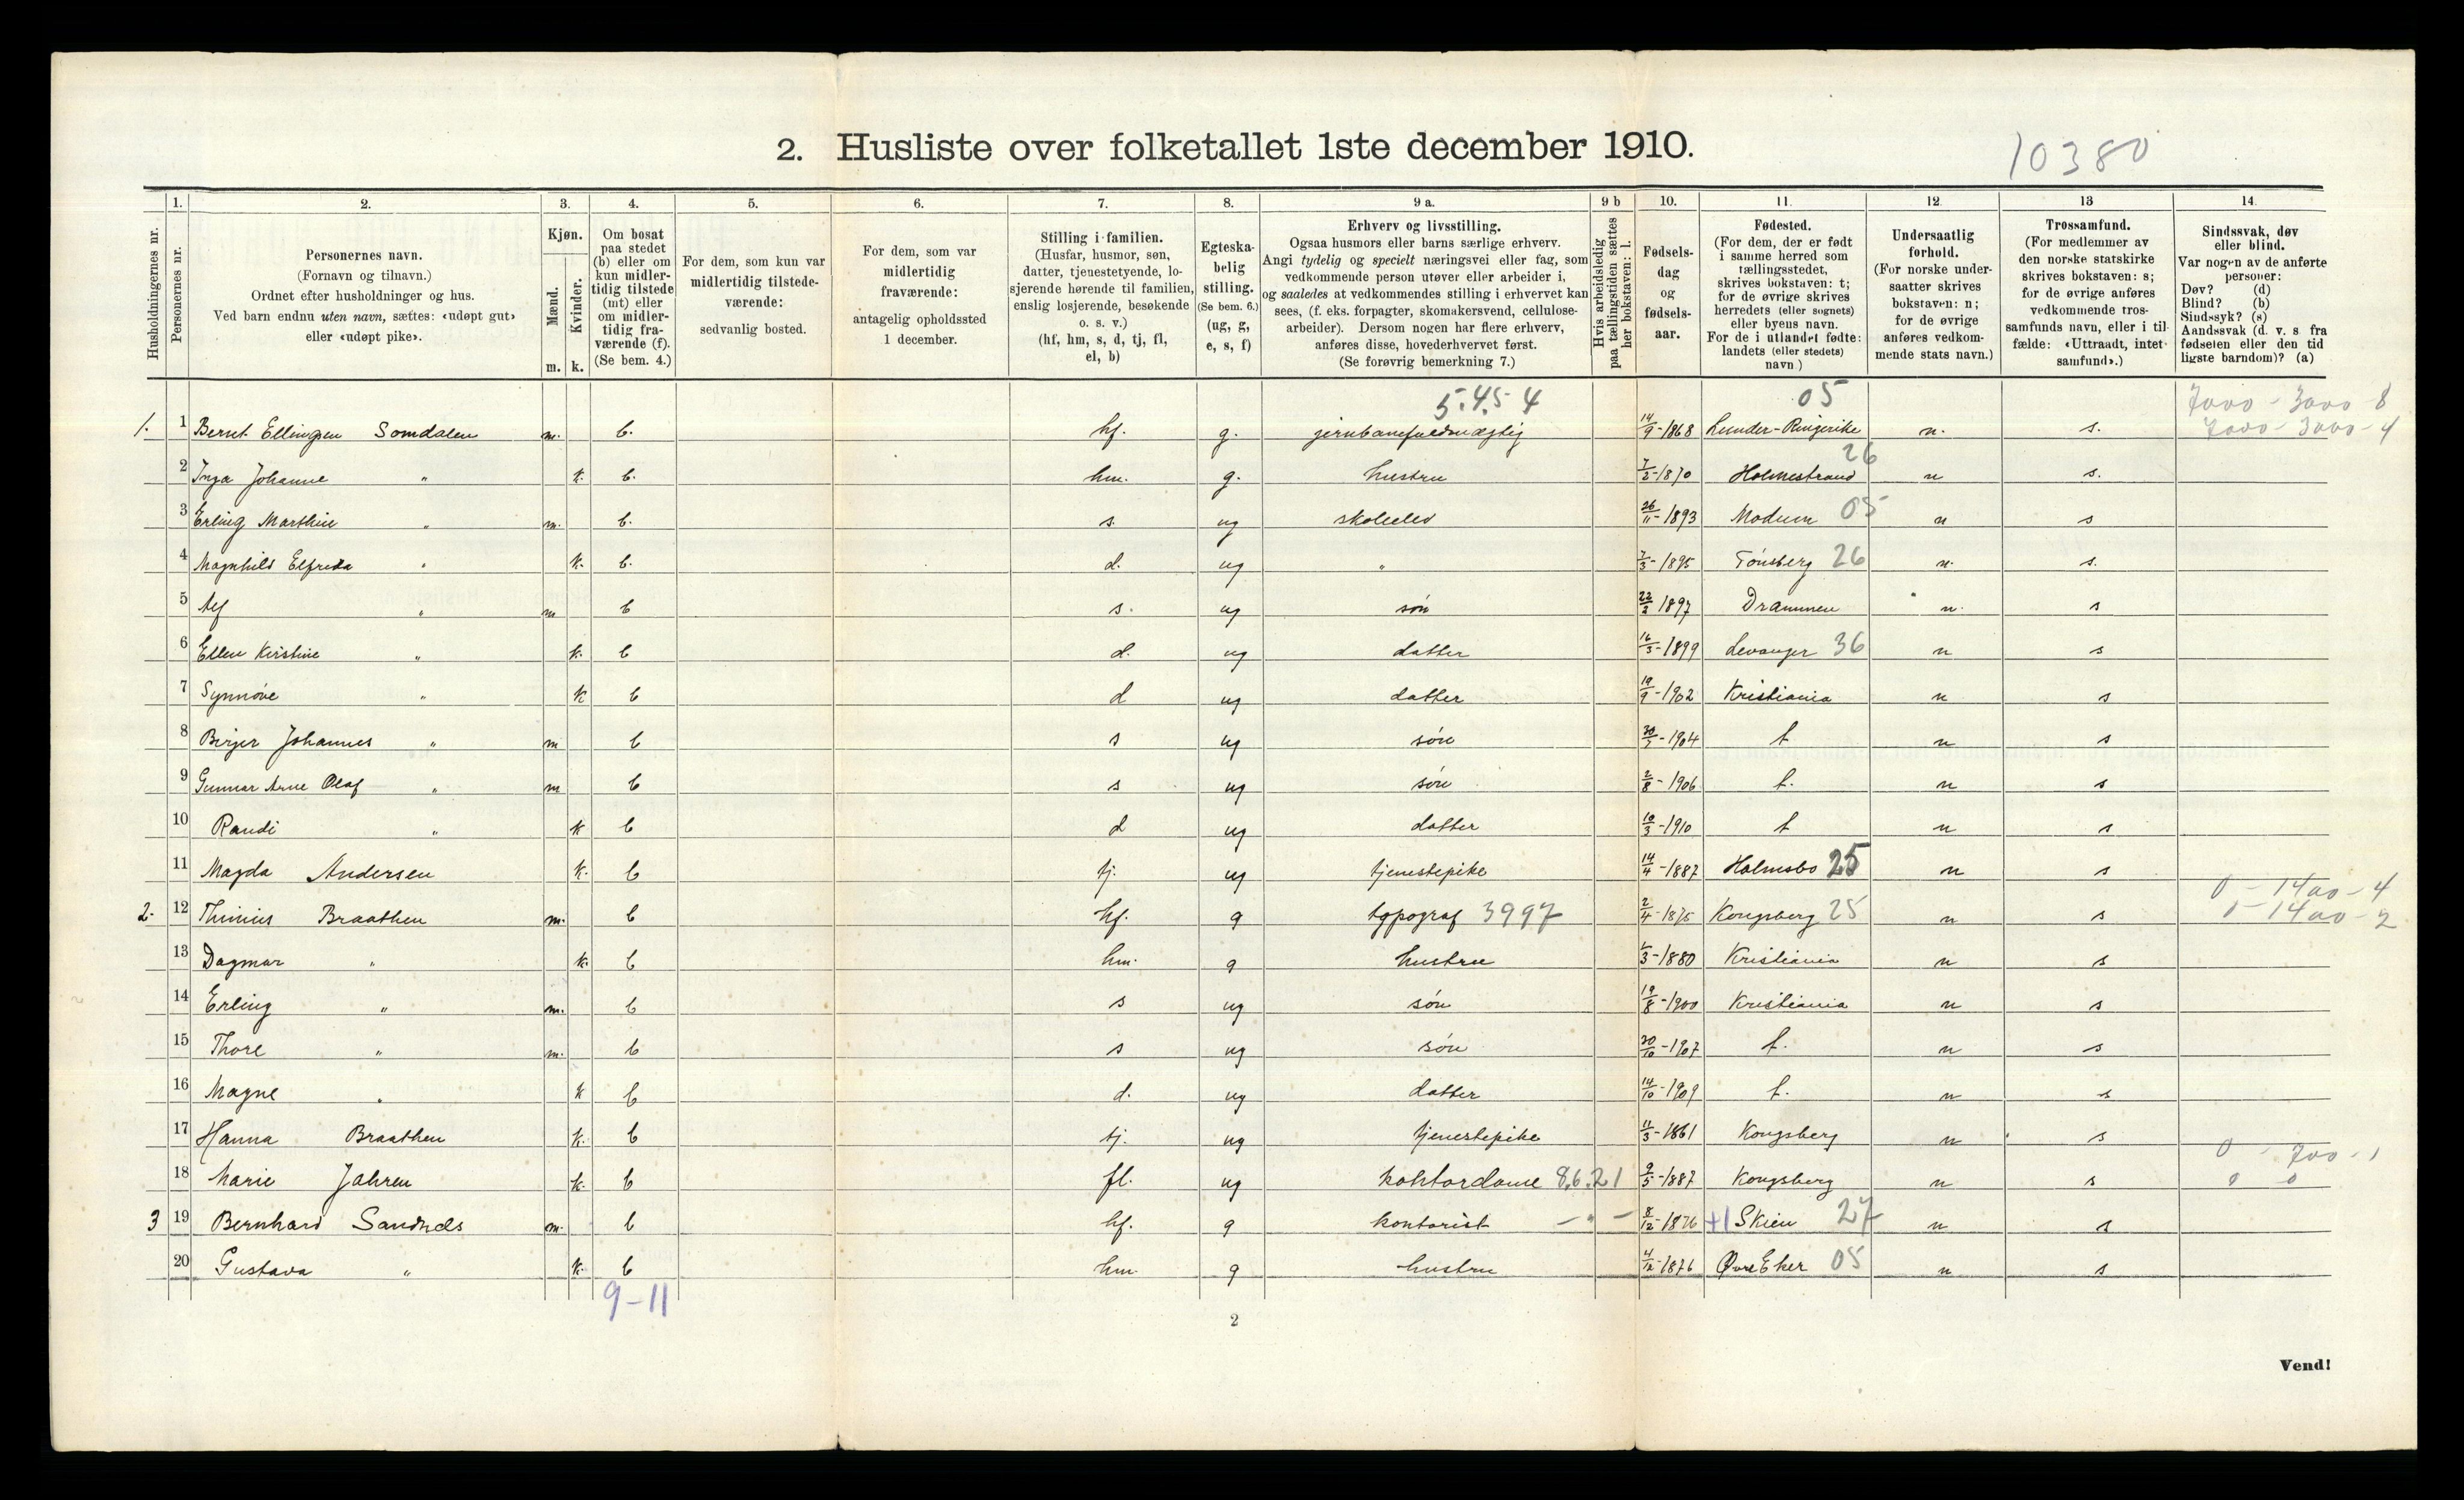 2. Husliste over folketallet 1ste december 1910.
10380
Husholdningernes nr.
1. Personernes nr.
2. Personernes navn.
(Fornavn og tilnavn.)
Ordnet efter husholdninger og hus.
Ved barn endnu uten navn, sættes: «udøpt gut»
eller «udøpt pike».
3. Kjøn.
Mænd. Kvinder.
m. k.
4. Om bosat
paa stedet
(b) eller om
kun midler-
tidig tilstede
(mt) eller
om midler-
tidig fra-
værende (f).
(Se bem. 4.)
5. For dem, som kun var
midlertidig tilstede-
værende:
sedvanlig bosted.
6. For dem, som var
midlertidig
fraværende:
antagelig opholdssted
1 december.
7. Stilling i familien.
(Husfar, husmor, søn,
datter, tjenestetyende, lo-
sjerende hørende til familien,
enslig losjerende, besøkende
o. s. v.)
(hf, hm, s, d, tj, fl,
el, b)
8. Egteska-
belig
stilling.
(Se bem. 6.)
(ug, g,
e, s, f)
9 a. Erhverv og livsstilling.
Ogsaa husmors eller barns særlige erhverv.
Angi tydelig og specielt næringsvei eller fag, som
vedkommende person utøver eller arbeider i,
og saaledes at vedkommendes stilling i erhvervet kan
sees, (f. eks. forpagter, skomakersvend, cellulose-
arbeider). Dersom nogen har flere erhverv,
anføres disse, hovederhvervet først.
(Se forøvrig bemerkning 7.)
9 b Hvis arbeidsledig
paa tællingstiden sættes
her bokstaven: l.
10. Fødsels-
dag
og
fødsels-
aar.
11. Fødested.
(For dem, der er født
i samme herred som
tællingsstedet,
skrives bokstaven: t;
for de øvrige skrives
herredets (eller sognets)
eller byens navn.
For de i utlandet fødte:
landets (eller stedets)
navn)
12. Undersaatlig
forhold.
(For norske under-
saatter skrives
bokstaven: n;
for de øvrige
anføres vedkom-
mende stats navn.)
13 Trossamfund.
(For medlemmer av
den norske statskirke
skrives bokstaven: s;
for de øvrige anføres
vedkommende tros-
samfunds navn, eller i til-
fælde: «Uttraadt, intet
samfund».)
14. Sindssvak, døv
eller blind.
Var nogen av de anførte
personer:
Døv? (d)
Blind? (b)
Sindssyk? (s)
Aandssvak (d. v. s. fra
fødselen eller den tid
ligste barndom)? (a)
5.45 4 05 7000 - 3000 8
1. 1 Bernt Ellingsen Somdalen m. b. hf. g. jernbanefuldmægtig 14/9-1868 Lunder-Ringerike n. s. 7000 - 3000 - 4
2 Inga Johanne " k. b. hm. g. hustru 7/2-1870 Holmestrand 26 n s.
3 Erling Marthin " m. b. s. ug skoleelev 26/11-1893 Modum 05 n s
4 Magnhild Elfreda " k. b. d. ug " 7/3-1895 Tønsberg 26 n. s.
5 Alf " m b s. ug søn 22/2 1897 Drammen n. s
6 Ellen Kirstine " k. b d. ug datter 16/3-1899 Levanger 36 n s
7 Synnøve " k b d ug datter 19/9-1902 Kristiania n s
8 Birger Johannes " m b s ug søn -1904 t n s
9 Gunnar Arne Olaf " m b s ug søn 2/8-1906 t. n s
10 Randi " k b d ug datter 10/3-1910 t n s
11 Magda Andersen k. b tj. ug tjenestepike 14/4-1887 Holmsbo 25 n s
0 - 1400 - 4
2. 12 Thinius Braathen m. b hf. g typograf 3997 2/4-1875 Kongsberg 25 n s 0 - 1400 - 2
13 Dagmar " k. b hm. g hustru -1880 Kristiania n s
14 Erling " m. b s ug søn 19/8-1900 Kristiania n s
15 Thore " m. b s ug søn 20/10-1907 t. n s
16 Magne " k b d. ug datter 14/10-1909 t. n s
17 Hanna Braathen k. b tj. ug tjenestepike 11/3-1861 Kongsberg n s
0 - 700 - 1
18 Marie Jahren k. b fl. ug kontordame 8.6.21 9/5-1887 Kongsberg n s 0 0
3 19 Bernhard Sandnes m. b hf. g kontorist - " - 8/12-1876 +1 Skien 27 n s
20 Gustava " k. b hm. g hustru 4/12-1876 Øvre Eker 05 n s
9-11
2
Vend!